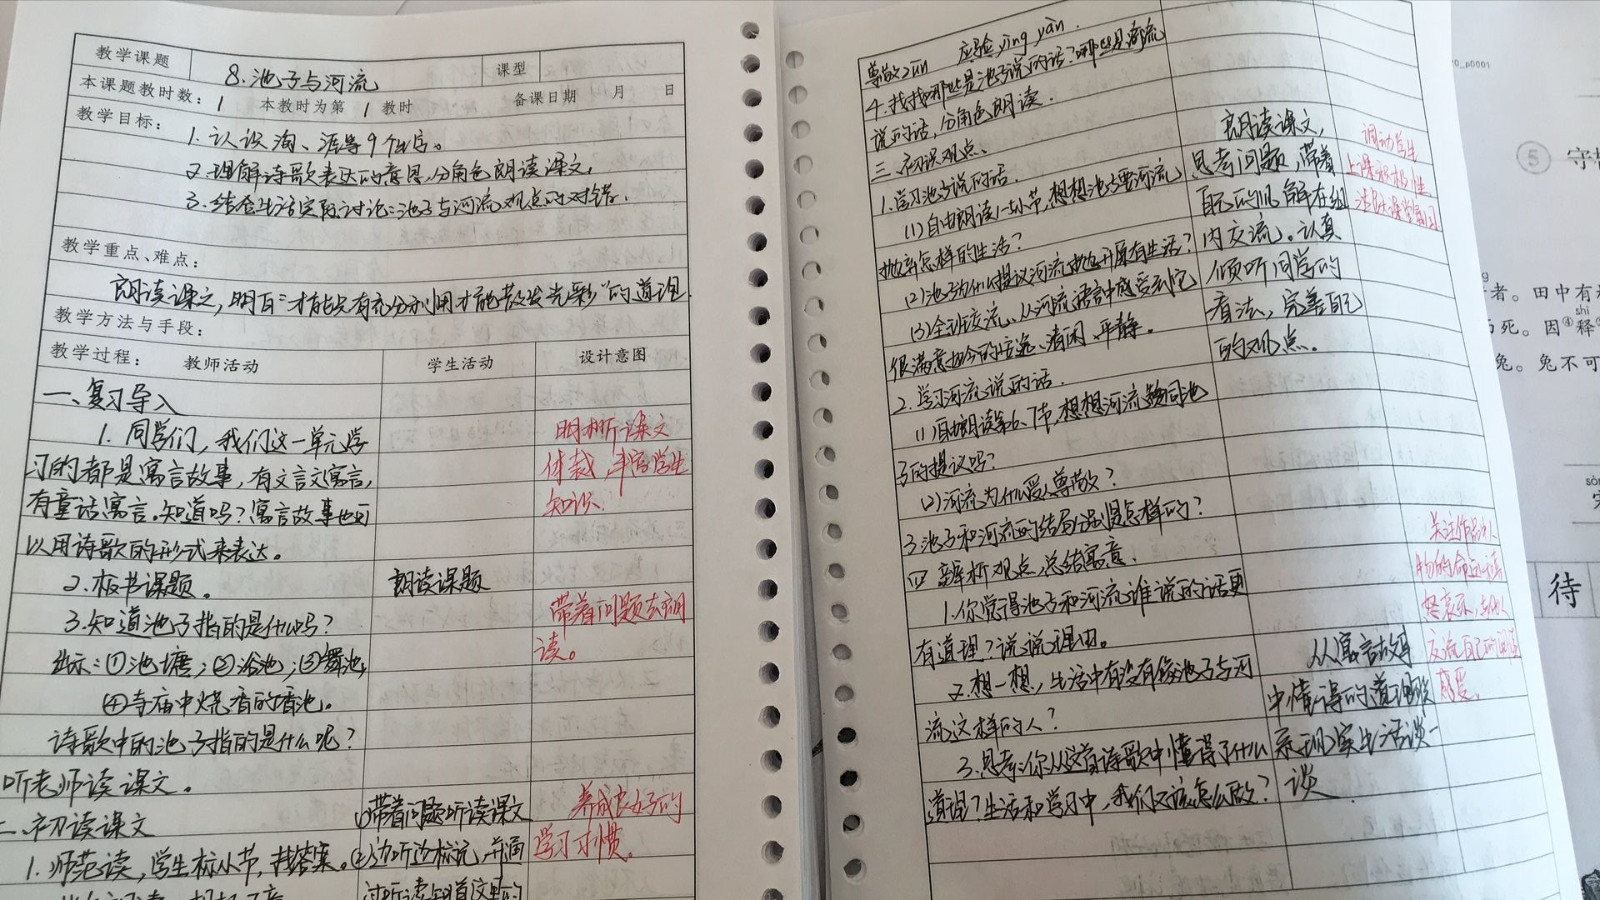 教学课题
8.池子与河流
课型
本课题教时数：1 本教时为第 1 教时 备课日期 月 日
教学目标：
1.认识淘、涯等9个生字。
2.理解诗歌表达的意思,分角色朗读课文。
3.结合生活实际讨论:池子与河流观点的对错。
教学重点、难点：
朗读课文,明白“才能只有充分利用才能散发光彩”的道理
教学方法与手段：
教学过程： 教师活动
学生活动
设计意图
一、复习导入
1.同学们,我们这一单元学
习的都是寓言故事,有文言文寓言,
有童话寓言。知道吗?寓言故事也可
以用诗歌的形式来表达。
2.板书课题。
3.知道池子指的是什么吗?
出示:①池塘;②浴池;③舞池;
④寺庙中烧香的香池。
诗歌中的池子指的是什么呢?
听老师读课文。
二、初读课文
1.师范读,学生标小节,找答案。
朗读课题
①带着问题听读课文
②边听边标记,并通
过听读知道这里的
明晰课文
体裁,丰富学生
知识.
带着问题去朗
读。
养成良好的
学习习惯。
尊敬zūn 应验yìng yàn.
4.找找哪些是池子说的话?哪些是河流
说的话,分角色朗读.
三、初识观点、
1.学习池子说的话.
(1)自由朗读1-5小节,想想池子要河流
抛弃怎样的生活?
(2)池子为什么提议河流抛开原有生活?
(3)全班交流、从河流语言中感受到它
很满意如今的安逸、清闲、平静。
2.学习河流说的话.
(1)自由朗读第6、7节,想想河流赞同池
子的提议吗?
(2)河流为什么受人尊敬?
3.池子和河流的结局分别是怎样的?
四、辨析观点,总结寓意.
1.你觉得池子和河流谁说的话更
有道理?说说理由。
2.想一想,生活中有没有像池子与河
流这样的人?
3.思考:你从这首诗歌中懂得了什么
道理?生活和学习中,我们又该怎么做?
朗读课文,
思考问题,带着
自己的见解在组
内交流。认真
倾听同学的
看法,完善自己
的观点。
从寓言故事
中懂得的道理联
系现实生活谈一
谈
调动学生
上课积极性,
活跃课堂氛围
关注作品中人
物的命运与喜
怒哀乐,与他人
交流自己的阅读
感受.
_p0001
⑤ 守
者。田中有
死。因④释
shì
兔。兔不可
待